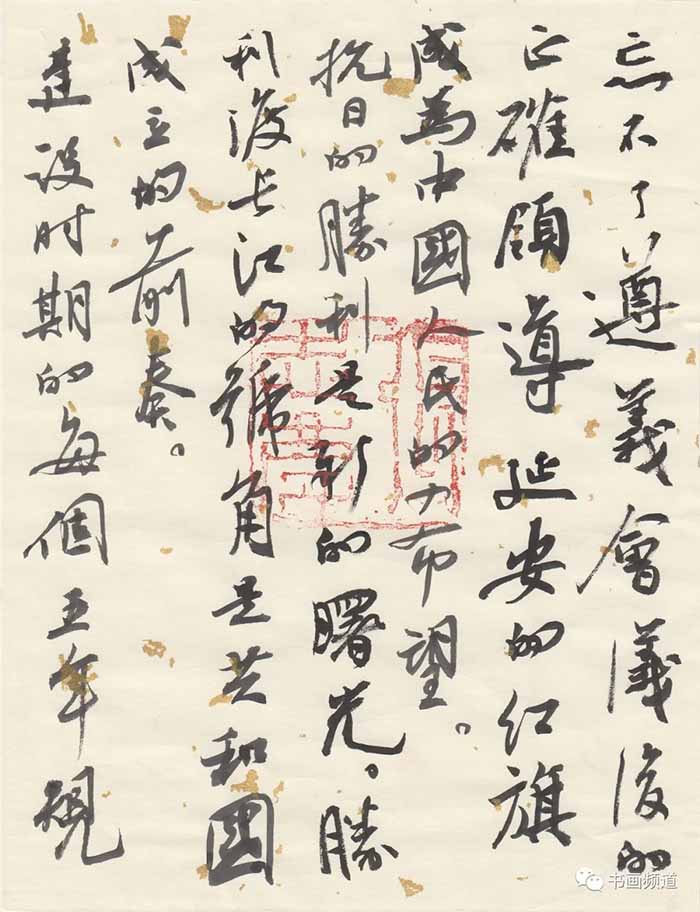 忘不了遵義會議後的
正確領導延安的红旗
成為中國人民的希望。
抗日的勝利是新的曙光。勝
利渡长江的號角是共和國
成立的前奏。
建设时期的每個五年規
书画频道